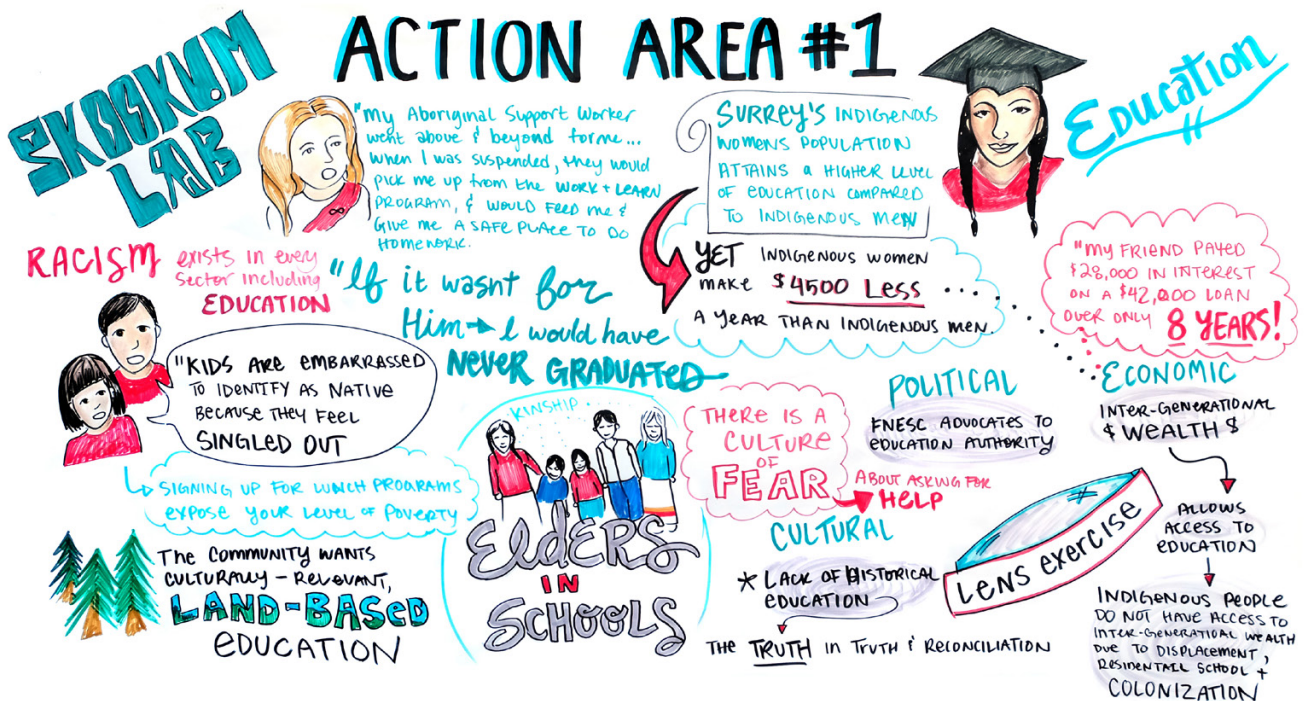 SKOOKUM
LAB
ACTION AREA #1
Education
"My Aboriginal Support Worker
went above & beyond for me...
when I was suspended, they would
pick me up from the WORK + LEARN
PROGRAM, & WOULD FEED me &
GIVE ME A SAFE PLACE TO DO
HOMEWORK.
"If it wasnt for
Him → I would have
NEVER GRADUATED
SURREY'S INDIGENOUS
WOMENS POPULATION
ATTAINS A HIGHER LEVEL
OF EDUCATION COMPARED
TO INDIGENOUS MEN
YET INDIGENOUS WOMEN
MAKE $4500 Less
A YEAR THAN INDIGENOUS MEN.
"MY FRIEND PAYED
$28,000 IN INTEREST
ON A $42,000 LOAN
OVER ONLY 8 YEARS!
RACISM exists in every
Sector including
EDUCATION
"KIDS ARE EMBARRASSED
TO IDENTIFY AS NATIVE
BECAUSE THEY FEEL
SINGLED OUT
SIGNING UP FOR LUNCH PROGRAMS
EXPOSE YOUR LEVEL OF POVERTY
The COMMUNITY WANTS
CULTURALLY - RELEVANT,
LAND-BASED
EDUCATION
KINSHIP
ELDERS
IN
SCHOOLS
THERE IS A
CULTURE
OF
FEAR
ABOUT ASKING FOR
HELP
POLITICAL
FNESC ADVOCATES TO
EDUCATION AUTHORITY
CULTURAL
* LACK OF HISTORICAL
EDUCATION
THE TRUTH in TRUTH & RECONCILIATION
LENS exercise
ECONOMIC
INTER-GENERATIONAL
$ WEALTH $
ALLOWS
ACCESS TO
EDUCATION
INDIGENOUS PEOPLE
DO NOT HAVE ACCESS TO
INTER-GENERATIONAL WEALTH
DUE TO DISPLACEMENT,
RESIDENTAIL SCHOOL +
COLONIZATION